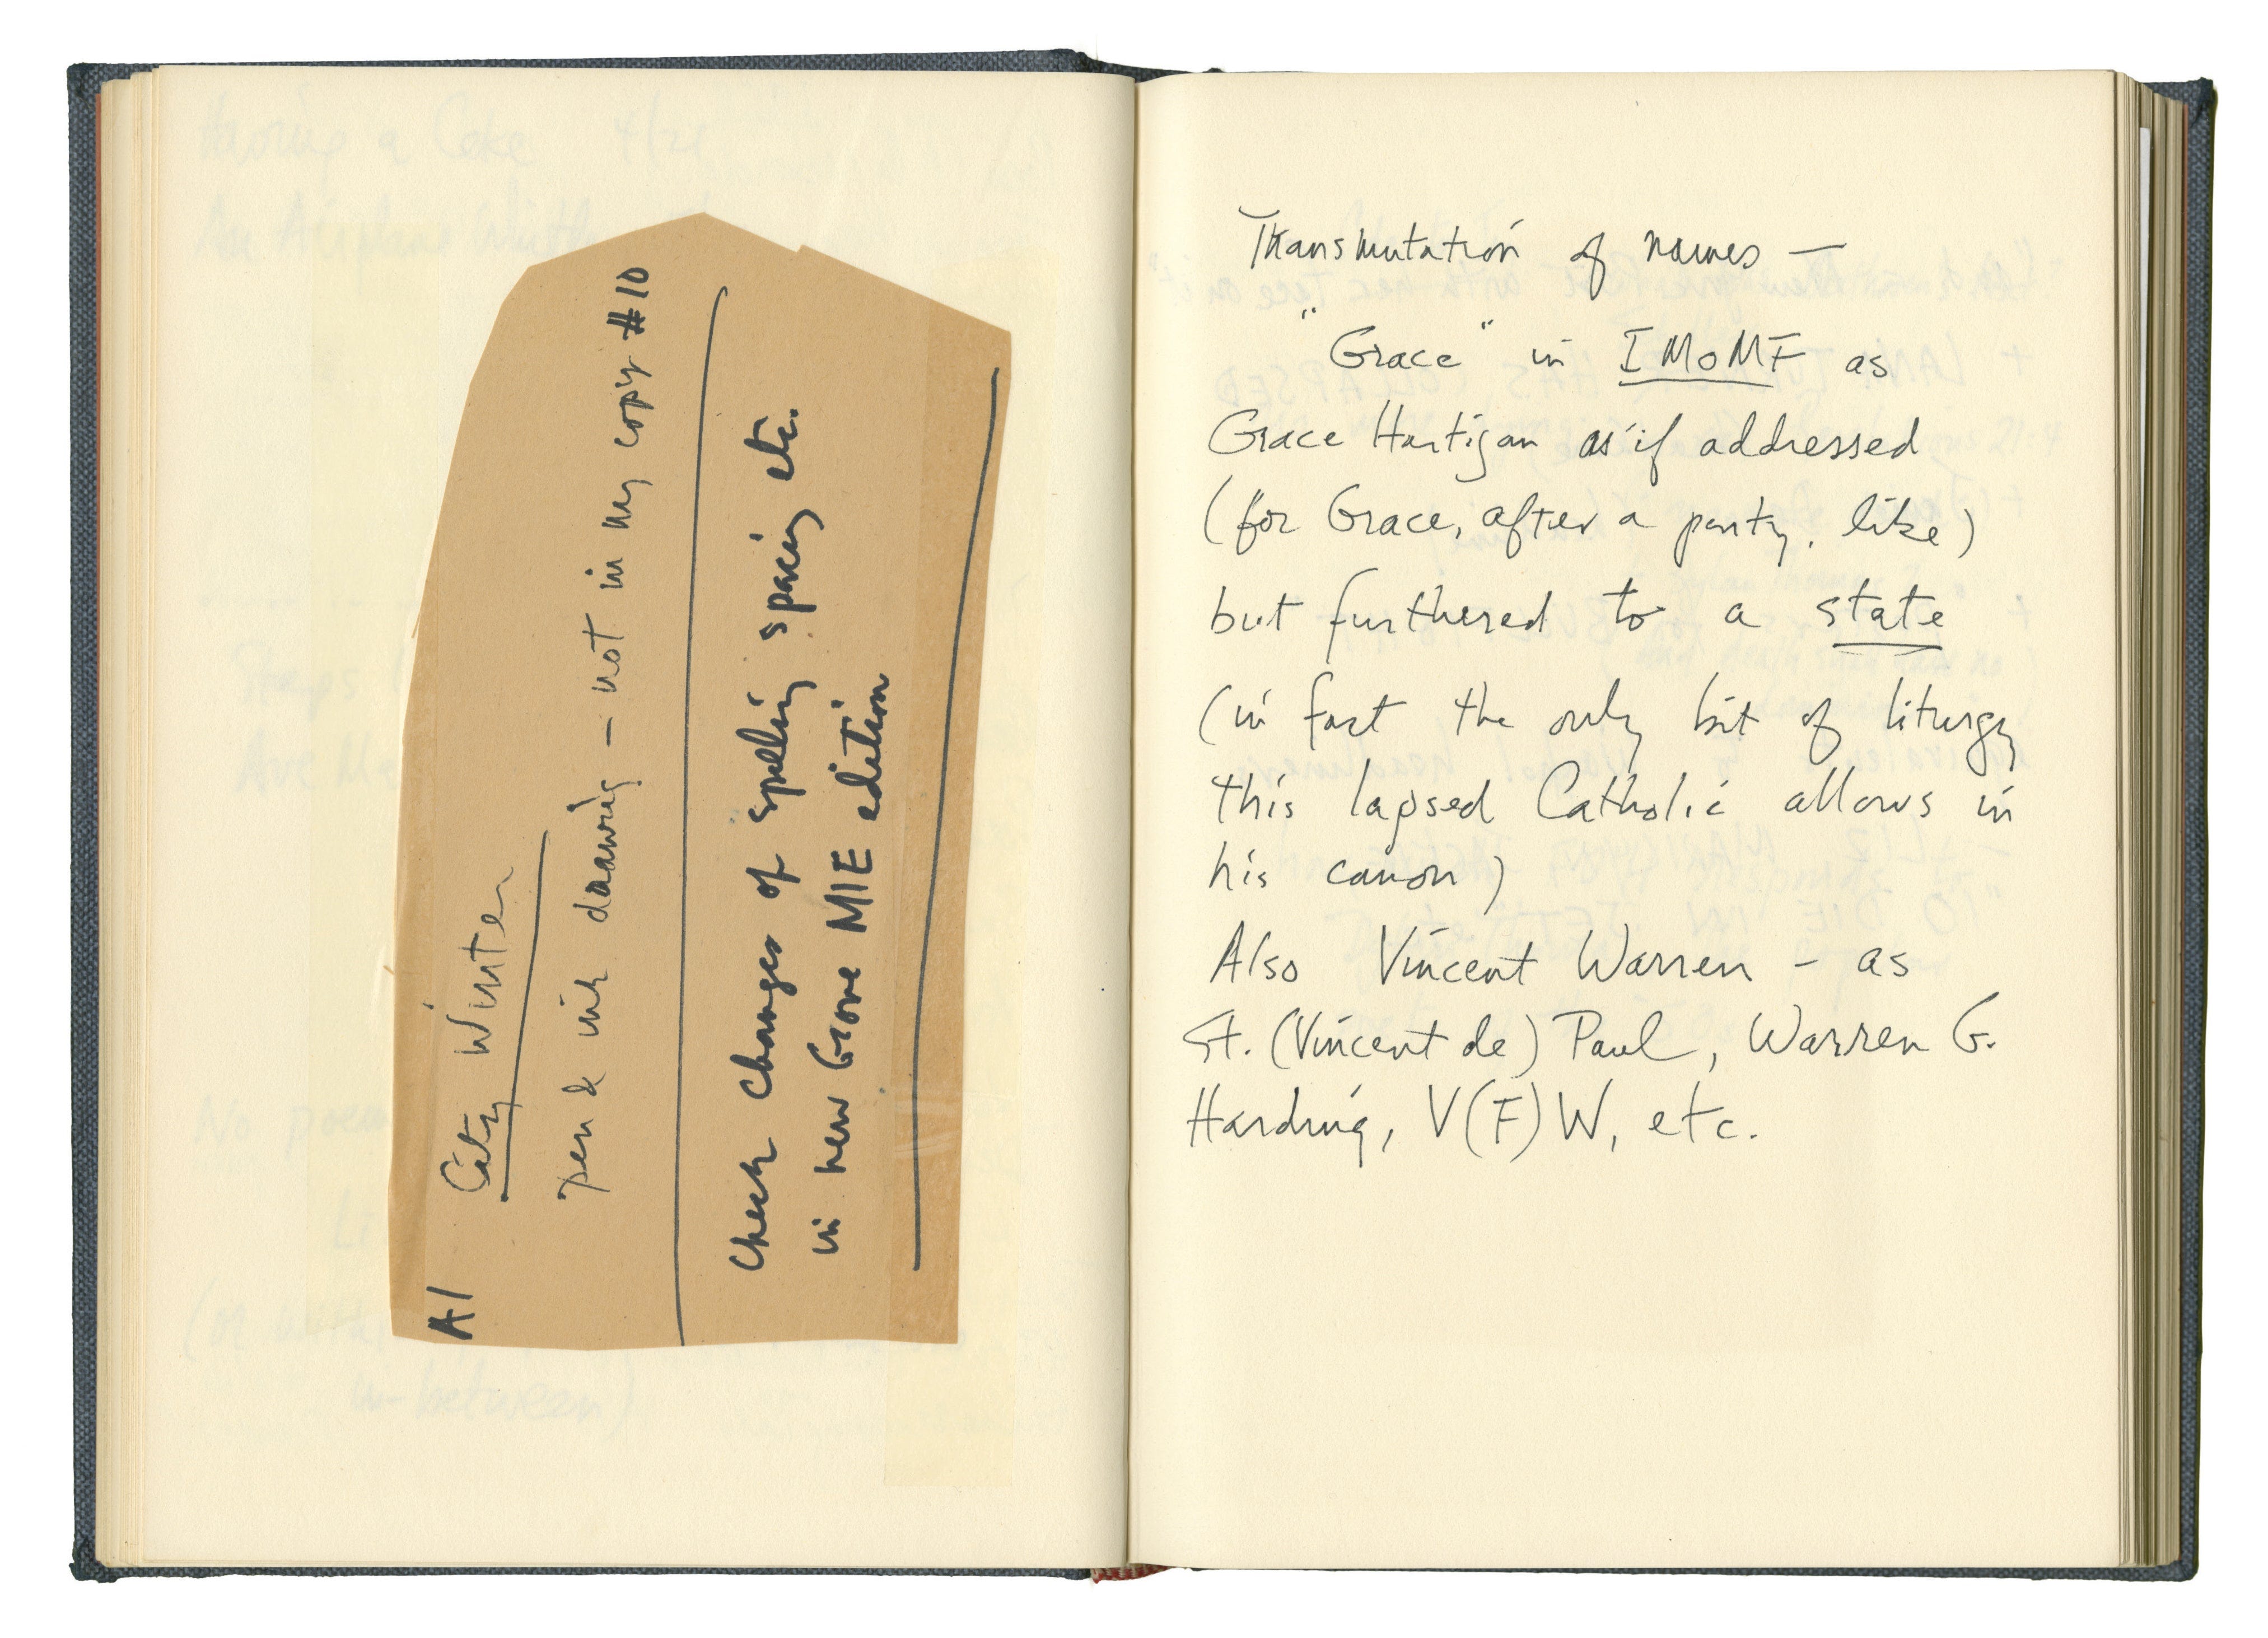 A1 City Winter
pen & ink drawing – not in my copy #10
Check changes of spelling spacing etc.
in new Grove MIE edition
Transmutation of names —
"Grace" in IMoMF as
Grace Hartigan as if addressed
(for Grace, after a party, like)
but furthered to a state
(in fact the only bit of liturgy
this lapsed Catholic allows in
his canon)
Also Vincent Warren – as
St. (Vincent de) Paul, Warren G.
Harding, V(F)W, etc.